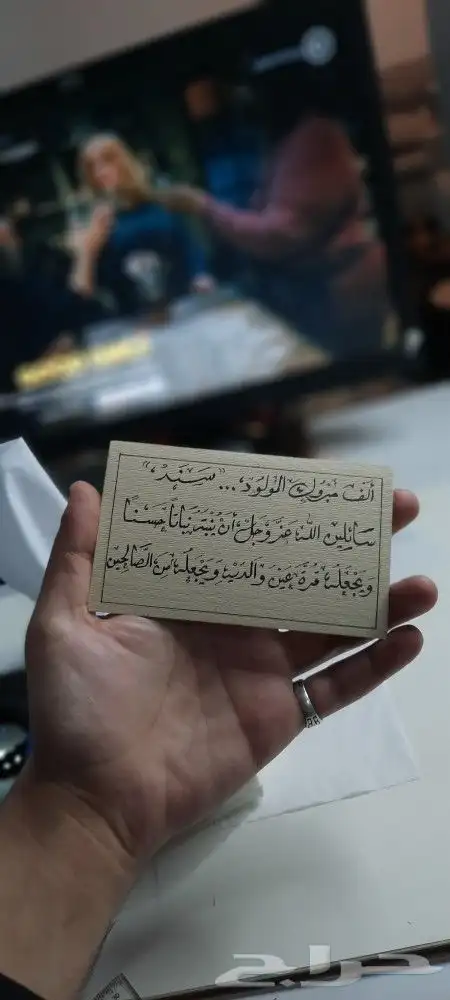 ألف مبروك المولود... "سَنَد"
سائلين الله عز وجل أن يُنبته نباتاً حسناً
ويجعله قرة عين والديه ويجعله من الصالحين
حراج